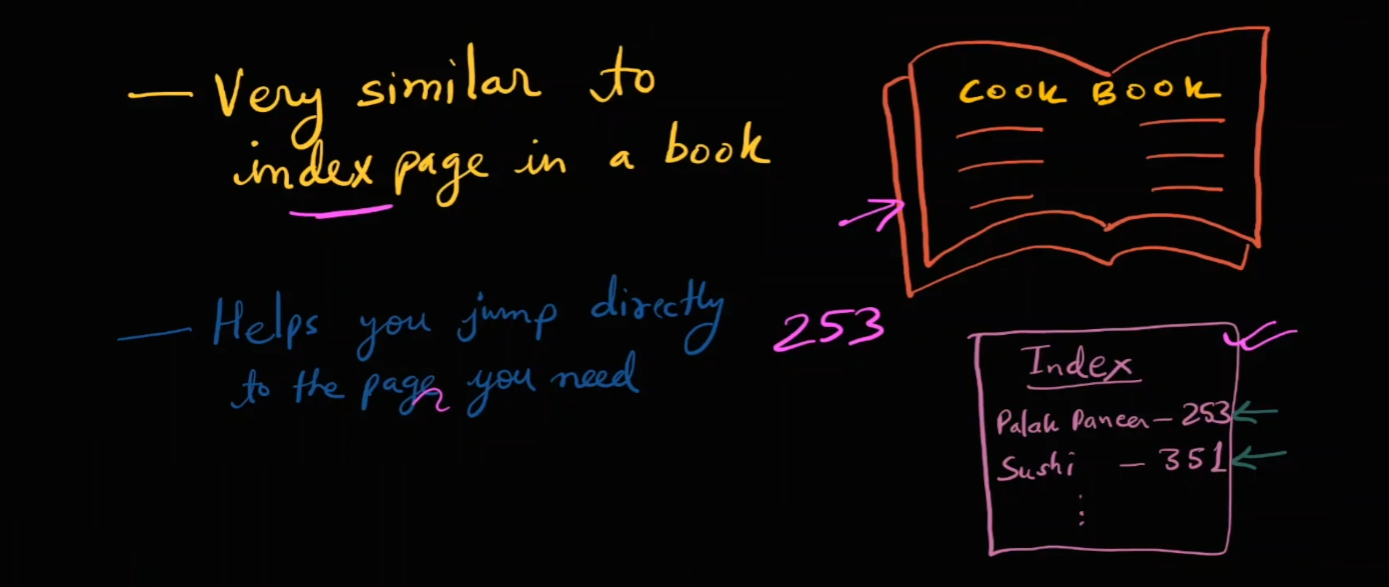 — Very similar to
index page in a book
— Helps you jump directly
to the page you need
253
COOK BOOK
Index
Palak Paneer – 253
Sushi – 351